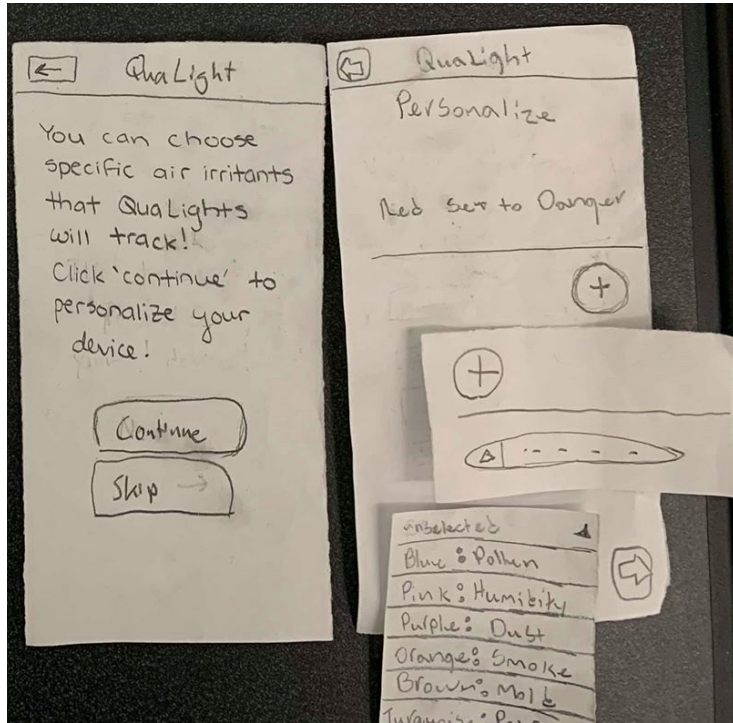 QuaLight
You can choose
specific air irritants
that QuaLights
will track!
Click 'continue' to
personalize your
device!
Continue
Skip →
QuaLight
Personalize
Red set to Danger
+
+
unselected
Blue: Pollen
Pink: Humibity
Purple: Dust
Orange: Smoke
Brown: Mold
Turquoise: